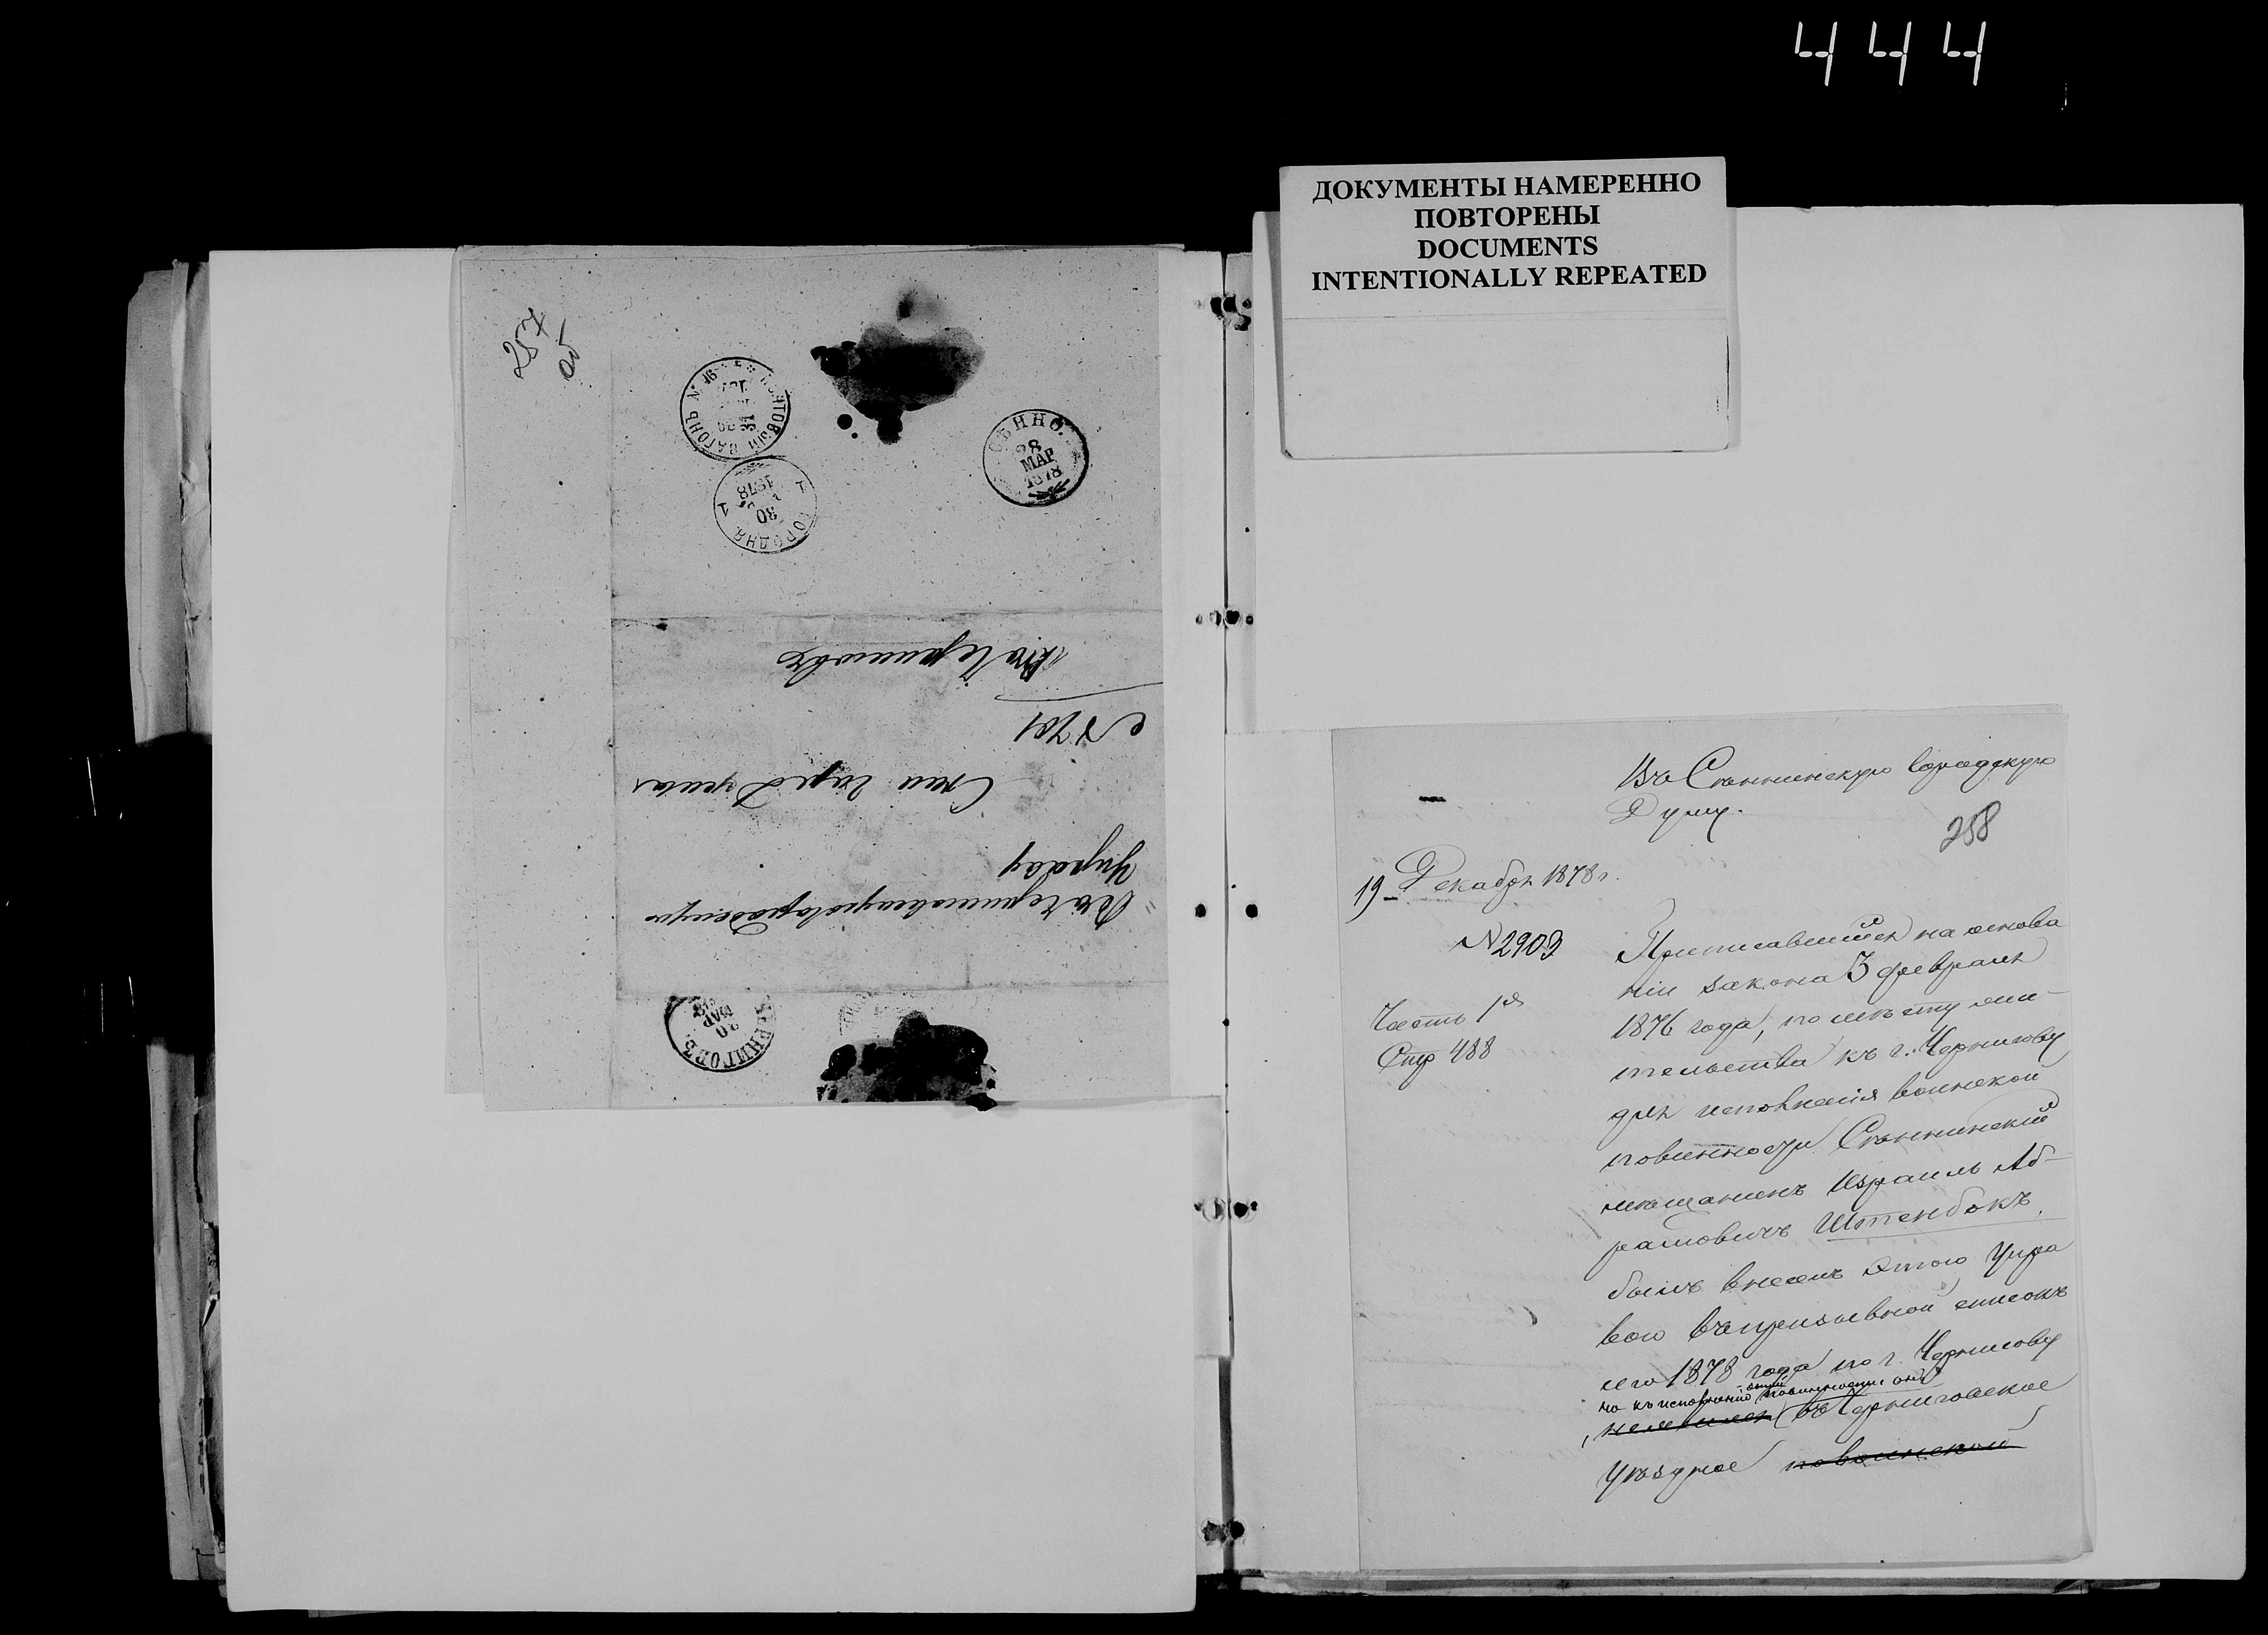 444
ДОКУМЕНТЫ НАМЕРЕННО
ПОВТОРЕНЫ
DOCUMENTS
INTENTIONALLY REPEATED
257
об
ПОЧТОВЫЙ ВАГОНЪ № 16
31
СѢННО.
28
МАР
1878
ГОРОДНЯ
30
1878
1 1
въ Черниговъ
№ 701
Гор Дума
Въ Черниговскую Городскую
Управу
ЧЕРНИГОВЪ.
30
МАР
Въ Сѣннинскую Городскую
Думу.
258
19 Декабря 1878 г.
№ 2903
Часть 1я
Стр 488
Приписавшійся на основа
ніи закона 3 февраля
1876 года, по мѣсту жи-
тельства къ г. Чернигову
для исполненія воинской
повинности Сѣннинскій
мѣщанинъ Израиль Аб-
рамовичъ Штенбокъ,
былъ внесенъ этою Упра
вою въ призывной списокъ
сего 1878 года по г. Чернигову
но къ исполненію этой повинности онъ
, не явился въ Черниговское
Уѣздное по воинской